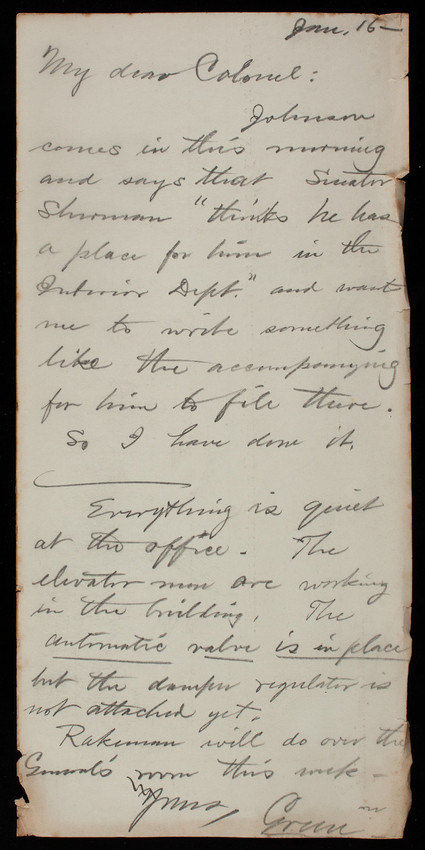 Jan. 16—
My dear Colonel:
Johnson
comes in this morning
and says that Senator
Sherman "thinks he has
a place for him in the
Interior Dept." and want
me to write something
like the accompanying
for him to file there.
So I have done it.
Everything is quiet
at the office. The
elevator men are working
in the building. The
automatic valve is in place
but the damper regulator is
not attached yet.
Rakeman will do over the
General's room this week —
Yours,
Green